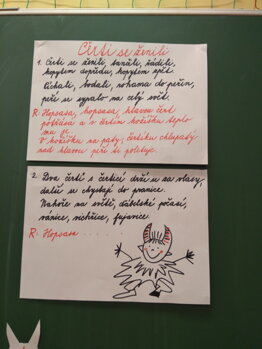 Čerti se ženili
1. Čerti se ženili, tančili, řádili,
kopytem dopředu, kopytem zpět.
Píchali, bodali, rohama do peřin,
peří se sypalo na celý svět.
R: Hopsasa, hopsasa, hlavou čert
potřásá a v čertím kožíšku teplo
mu je.
V kožíšku na paty, čertisku chlupatý
nad hlavou peří si poletuje.
2. Dva čerti s čerticí drží se za vlasy,
další se chystají do pranice.
Nahoře na světě, ďábelské počasí,
vánice, vichřice, fujavice.
R: Hopsasa . . . . .